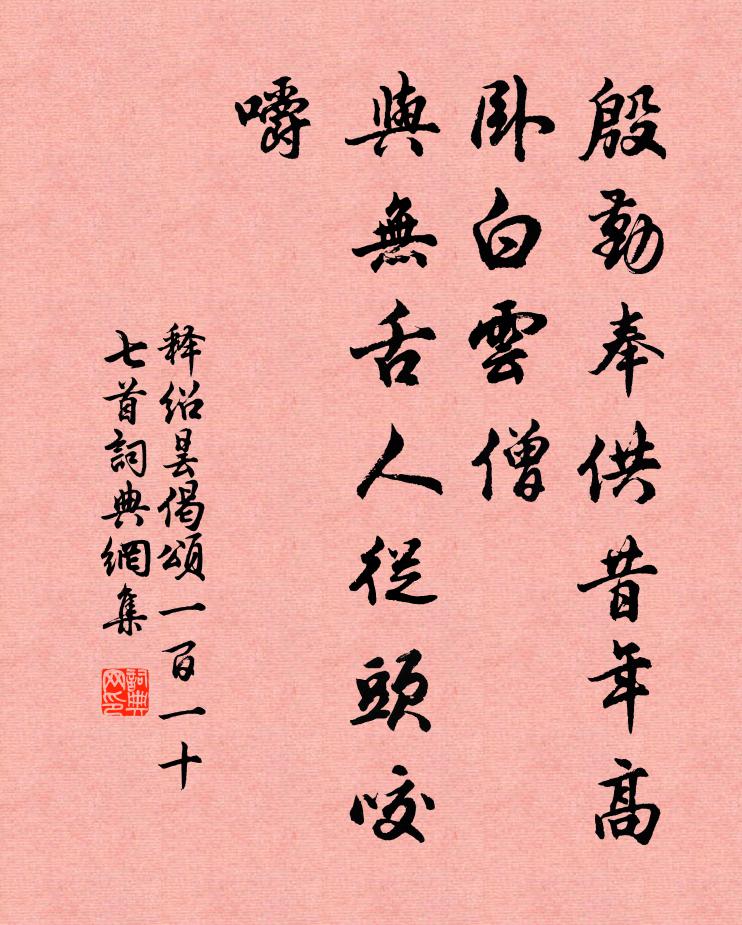 殷勤奉供昔年高
臥白雲僧
與無舌人從頭咬
嚼
释绍昙偈頌一百一十
七首詞典網集
詞典网印